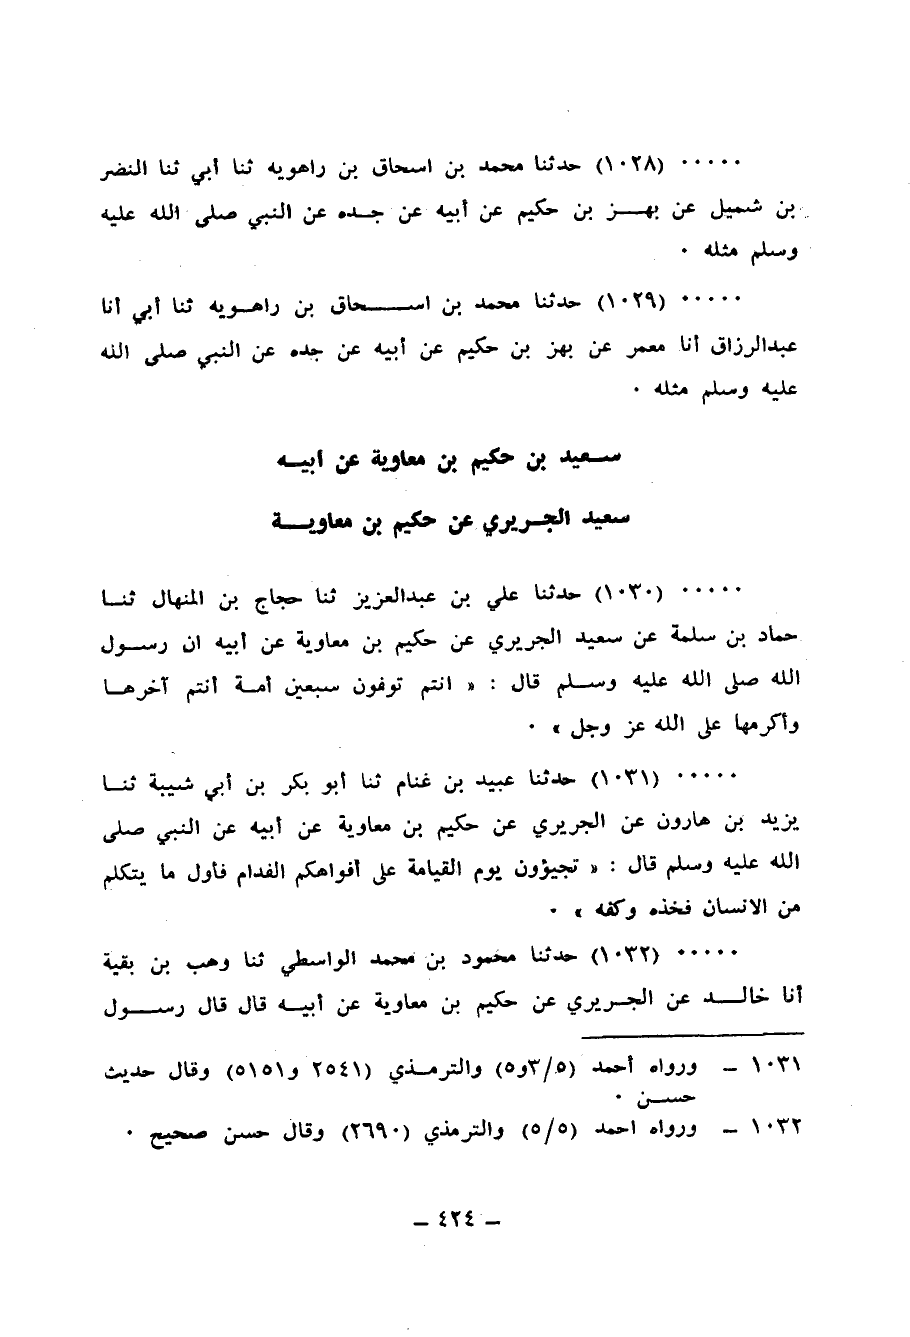 ..... (١٠٢٨) حدثنا محمد بن اسحاق بن راهويه ثنا أبي ثنا النضر
بن شميل عن بهـــز بن حكيم عن أبيه عن جـده عن النبي صلى الله عليه
وسلم مثله .
..... (١٠٢٩) حدثنا محمد بن اســـحاق بن راهـويه ثنا أبي أنا
عبدالرزاق أنا معمر عن بهز بن حكيم عن أبيه عن جده عن النبي صلى الله
عليه وسلم مثله .
سـعيد بن حكيم بن معاوية عن أبيـه
سعيد الجـريري عن حكيم بن معاويـــة
..... (١٠٣٠) حدثنا علي بن عبدالعزيز ثنا حجاج بن المنهال ثنـا
حماد بن سلمة عن سعيد الجريري عن حكيم بن معاوية عن أبيه ان رسـول
الله صلى الله عليه وسـلم قال : « انتم توفون سبعين أمـة أنتم آخرهـا
وأكرمها على الله عز وجل » .
..... (١٠٣١) حدثنا عبيد بن غنام ثنا أبو بكر بن أبي شيبة ثنـا
يزيد بن هارون عن الجريري عن حكيم بن معاوية عن أبيه عن النبي صلى
الله عليه وسلم قال : « تجيؤون يوم القيامة على أفواهكم الفدام فأول ما يتكلم
من الانسان فخذه وكفه » .
..... (١٠٣٢) حدثنا محمود بن محمد الواسطي ثنا وهب بن بقية
أنا خالـــد عن الجـريري عن حكيم بن معاوية عن أبيـه قال قال رســـول
١٠٣١ ـ ورواه أحمد (٣/٥و٥) والترمـذي (٢٥٤١ و٥١٥١) وقال حديث
حســن .
١٠٣٢ ـ ورواه احمد (٥/٥) والترمذي (٢٦٩٠) وقال حسن صحيح .
ـ ٤٢٤ ـ